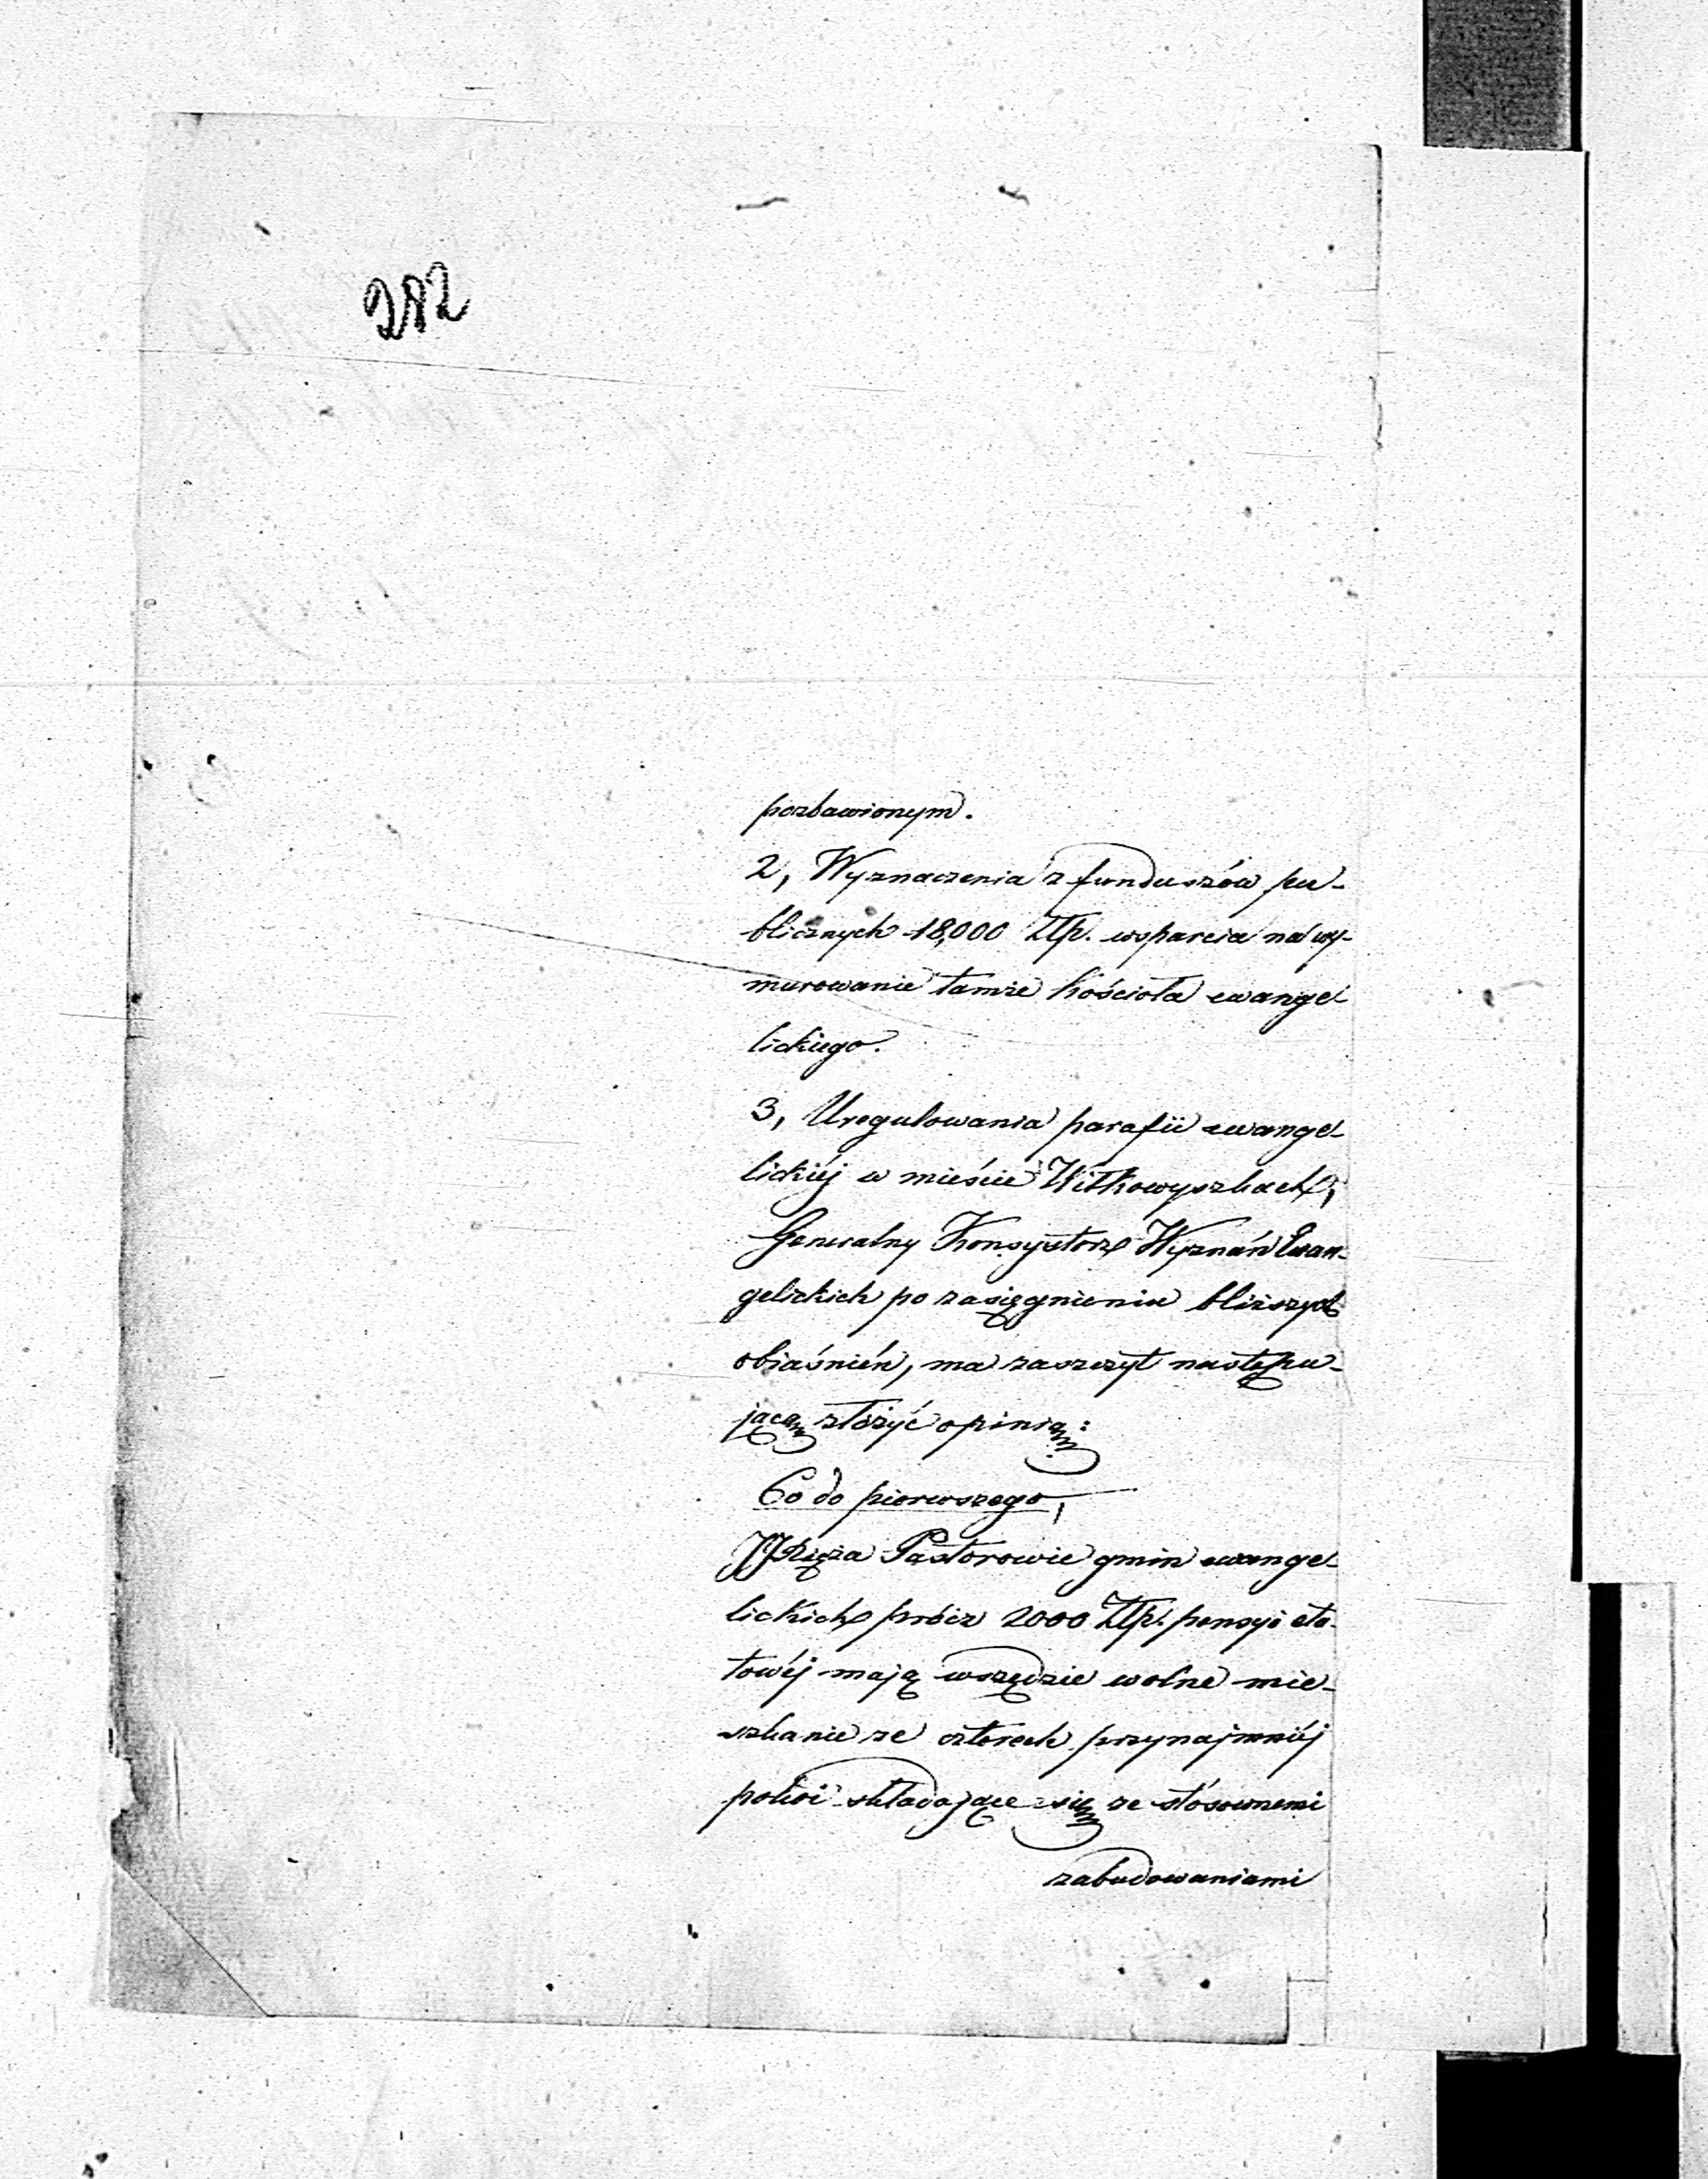 282
pozbawionym.
2, Wyznaczenia z funduszów pu-
blicznych 18,000 Złp. wsparcia na wy-
murowanie tamże kościoła ewange-
lickiego.
3, Uregulowania parafii ewange-
lickiéj w mieście Wiłkowyszkach,
Generalny Konsystorz Wyznań Ewan-
gelickich po zasięgnieniu bliższych
objaśnień, ma zaszczyt następu-
jącą złożyć opinią:
Co do pierwszego,
JJXięża Pastorowie gmin ewange-
lickich prócz 2000 Złp. pensyi eta-
towéj mają wszędzie wolne mie-
szkanie ze czterech przynajmniéj
pokoi składające się ze stósownemi
zabudowaniami